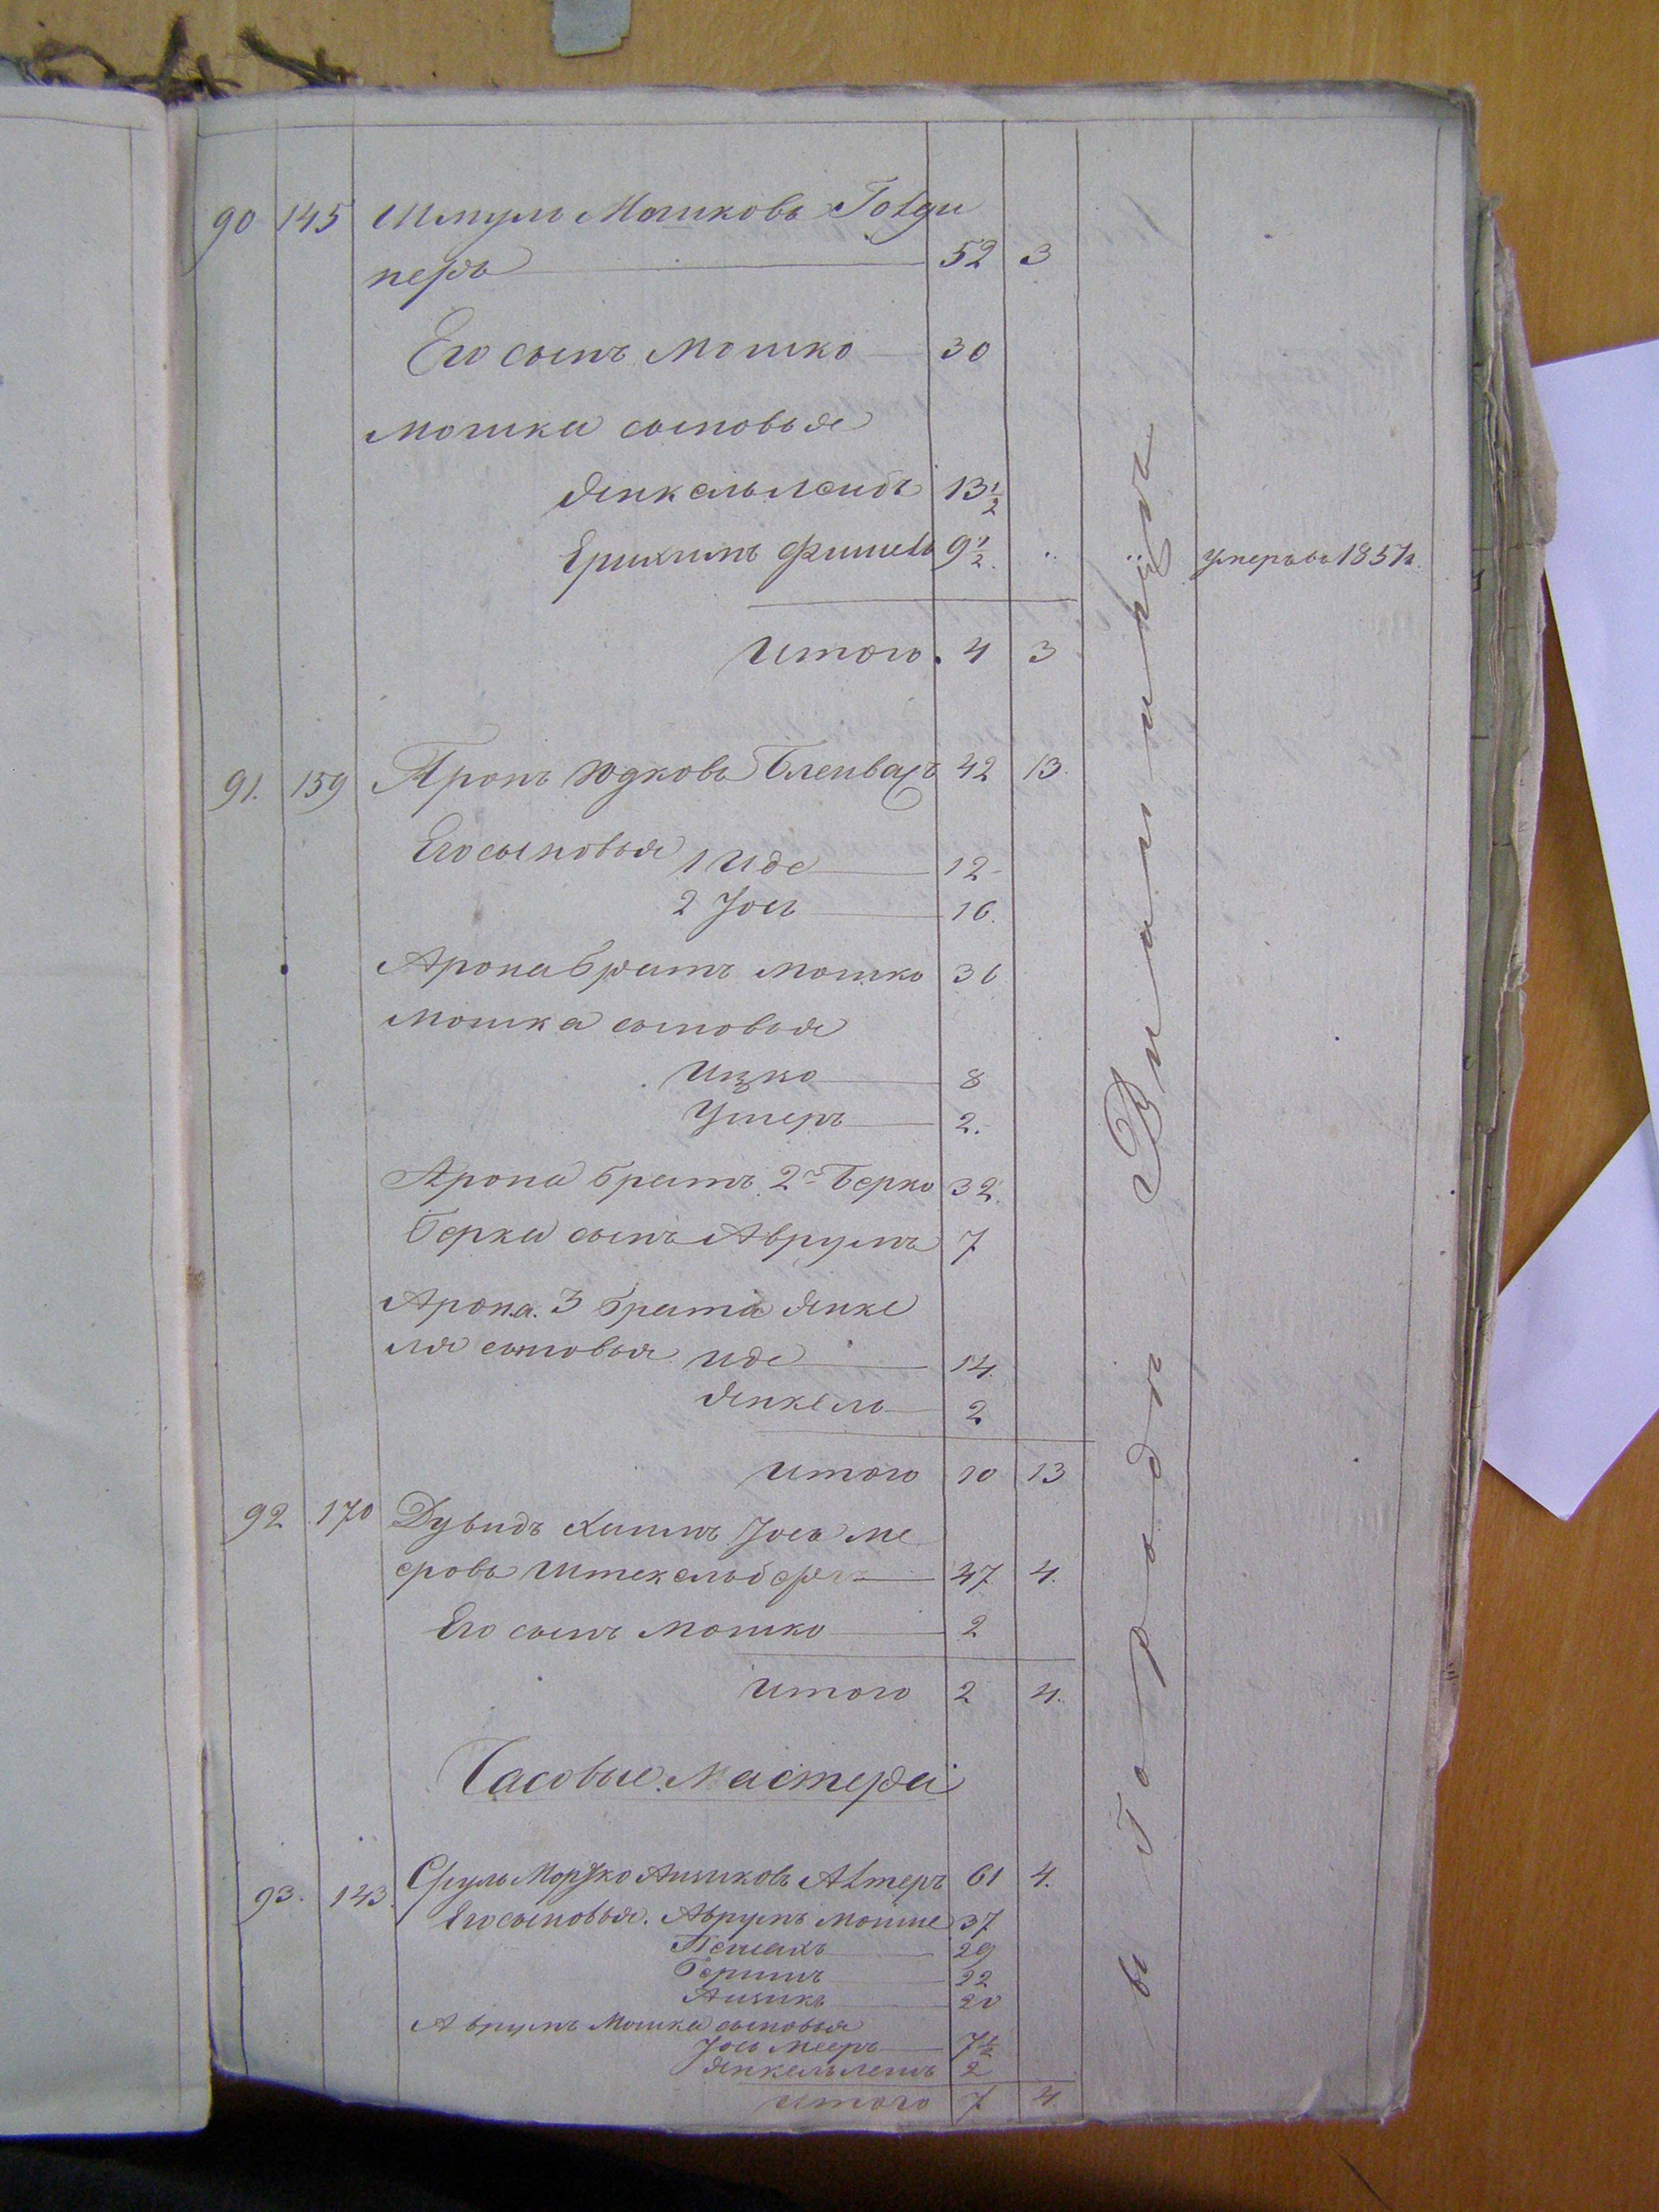 90 145 Шмуль Мошковъ Голди
неръ 52 3
Его сынъ Мошко 30
Мошка сыновья
Янкель Лейбъ 13 1/2
Ерихимъ Фишель 9 1/2 умеръ въ 1851 г.
Итого 4 3
91. 159 Аронъ Юдковъ Блейвасъ 42 13.
Его сыновья 1 Иде 12
2 Іось 10.
Арона братъ Мошко 36
Мошка сыновья
Ицко 8
Ушеръ 2.
Арона братъ 2й Берко 32.
Берка сынъ Аврумъ 7
Арона 3 брата Янке
ля сыновья Иде 14.
Янкель 2
Итого 10 13
92 170 Дувидъ Хаимъ Іось Ме
еровъ Штекельбергъ 47 4.
Его сынъ Мошко 2
Итого 2 4.
Часовые Мастера
93. 143. Сруль Мортко Аизиковъ Алтеръ 61 4.
Его сыновья. Аврумъ Мойше 37
Пейсахъ 29
Бершъ 22
Аизикъ 20
Аврумъ Мошка сыновья
Іось Мееръ 7 1/2
Янкель Лейбъ 2
Итого 7 4
въ Городѣ Винницѣ